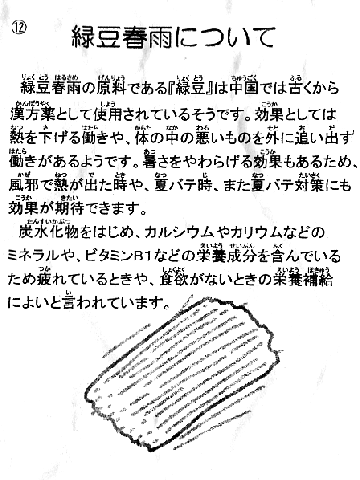 ⑫
緑豆春雨について
緑豆春雨の原料である『緑豆』は中国では古くから
漢方薬として使用されているそうです。効果としては
熱を下げる働きや、体の中の悪いものを外に追い出す
働きがあるようです。暑さをやわらげる効果もあるため、
風邪で熱が出た時や、夏バテ時、また夏バテ対策にも
効果が期待できます。
炭水化物をはじめ、カルシウムやカリウムなどの
ミネラルや、ビタミンB1などの栄養成分を含んでいる
ため疲れているときや、食欲がないときの栄養補給
によいと言われています。